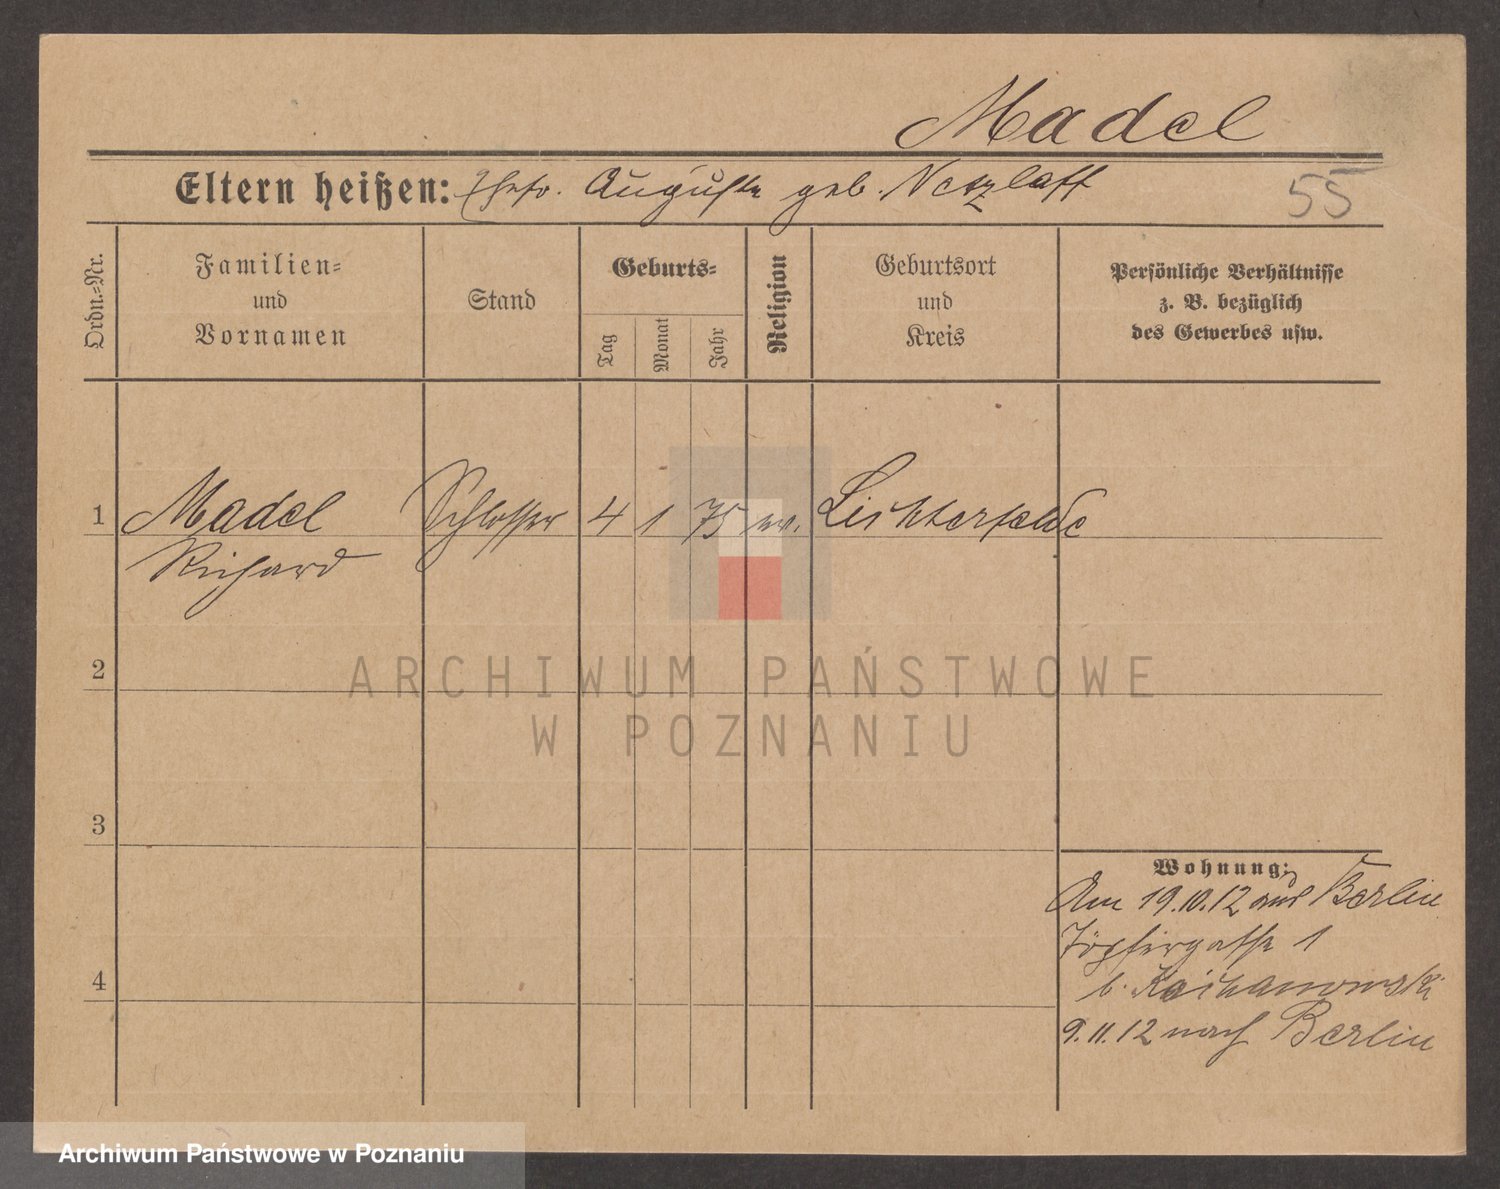 Madel
Eltern heißen: Ehefr. Auguste geb. Netzlaff
55
Ordn.-Nr.
Familien-
und
Vornamen
Stand
Geburts-
Tag
Monat
Jahr
Religion
Geburtsort
und
Kreis
Persönliche Verhältnisse
z. B. bezüglich
des Gewerbes usw.
1 Madel Schlosser 4 1 75 ev. Lichterfelde
Richard
2
ARCHIWUM PAŃSTWOWE
W POZNANIU
3
Wohnung:
Am 19.10.12 aus Berlin
Töpfergasse 1
b.
4
9.11.12 nach Berlin
Archiwum Państwowe w Poznaniu